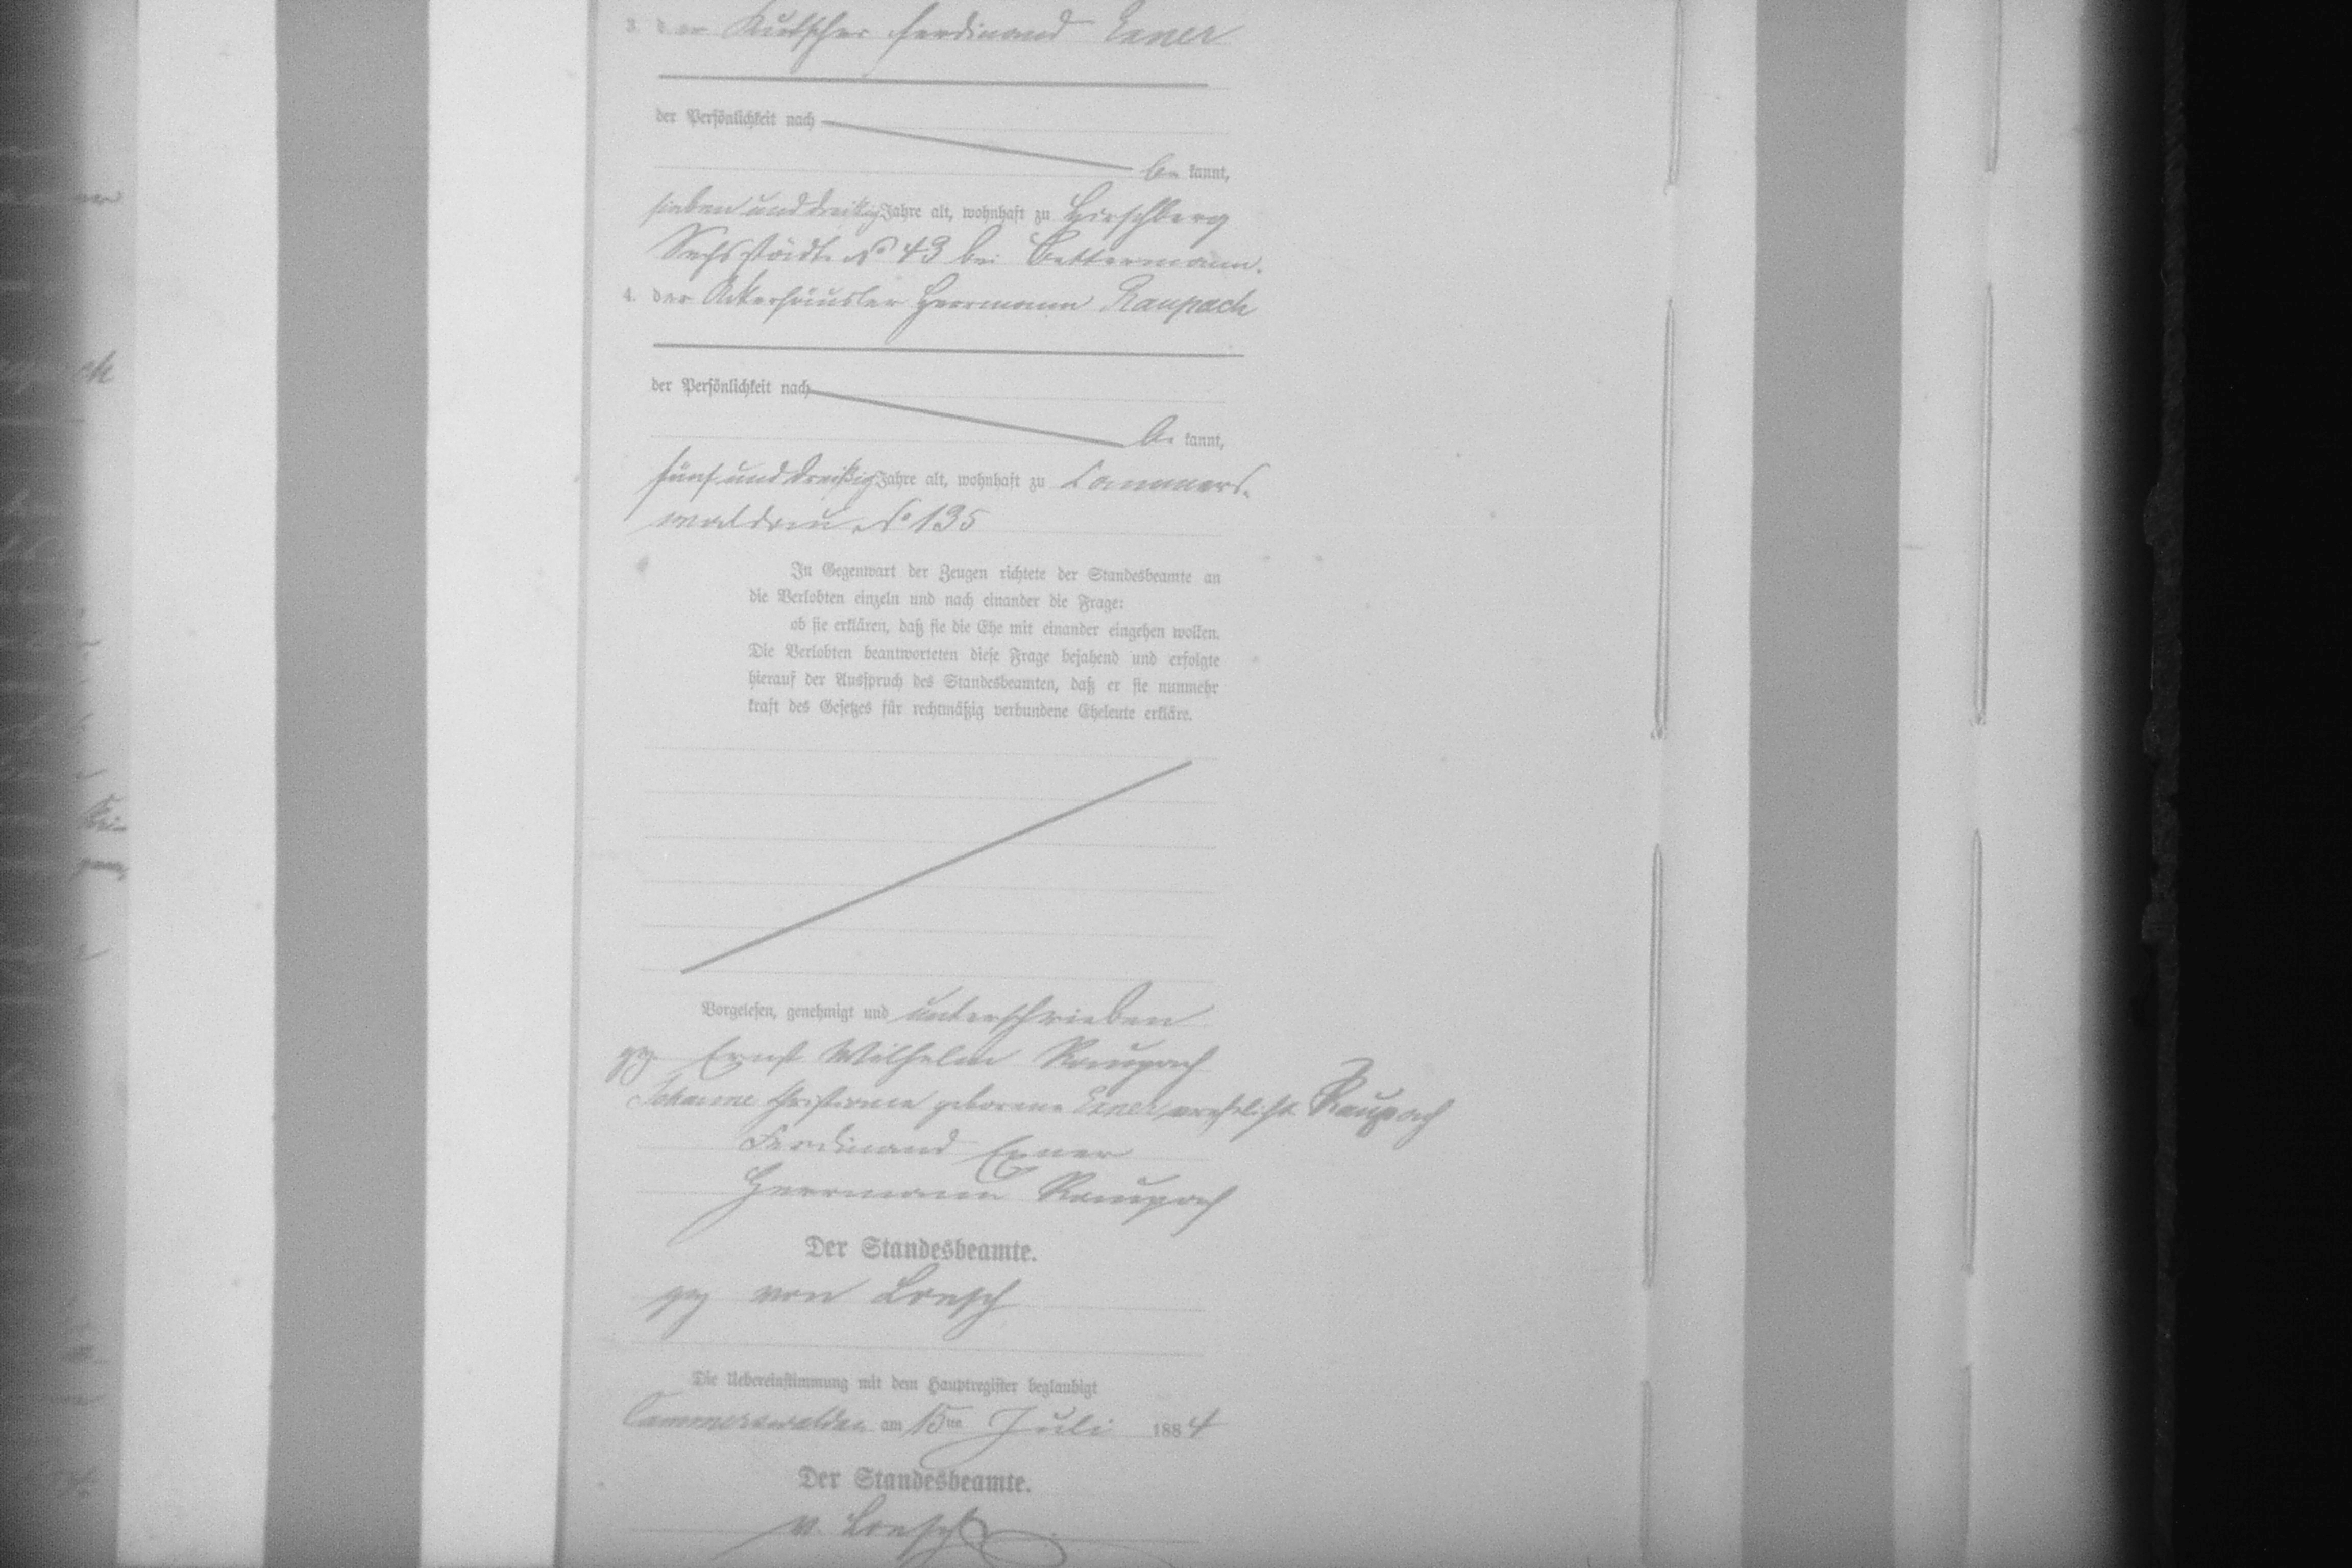 3. der Kutscher Ferdinand Exner
der Persönlichkeit nach
be kannt,
sieben und dreißig Jahre alt, wohnhaft zu Hirschberg
Sechsstädte No 43 bei Bettermann.
4. der Ackerhäusler Herrmann Raupach
der Persönlichkeit nach
be kannt,
fünf und dreißig Jahre alt, wohnhaft zu Cammers-
waldau No 135
In Gegenwart der Zeugen richtete der Standesbeamte an
die Verlobten einzeln und nach einander die Frage:
ob sie erklären, daß sie die Ehe mit einander eingehen wollen.
Die Verlobten beantworteten diese Frage bejahend und erfolgte
hierauf der Ausspruch des Standesbeamten, daß er sie nunmehr
kraft des Gesetzes für rechtmäßig verbundene Eheleute erkläre.
Vorgelesen, genehmigt und unterschrieben
gez Ernst Wilhelm Raupach
Johanne Christiane geborene Exner verehelicht Raupach
Ferdinand Exner
Herrmann Raupach
Der Standesbeamte.
gez von Loesch
Die Uebereinstimmung mit dem Hauptregister beglaubigt
Cammerswaldau am 15ten Juli 1884
Der Standesbeamte.
v. Loesch